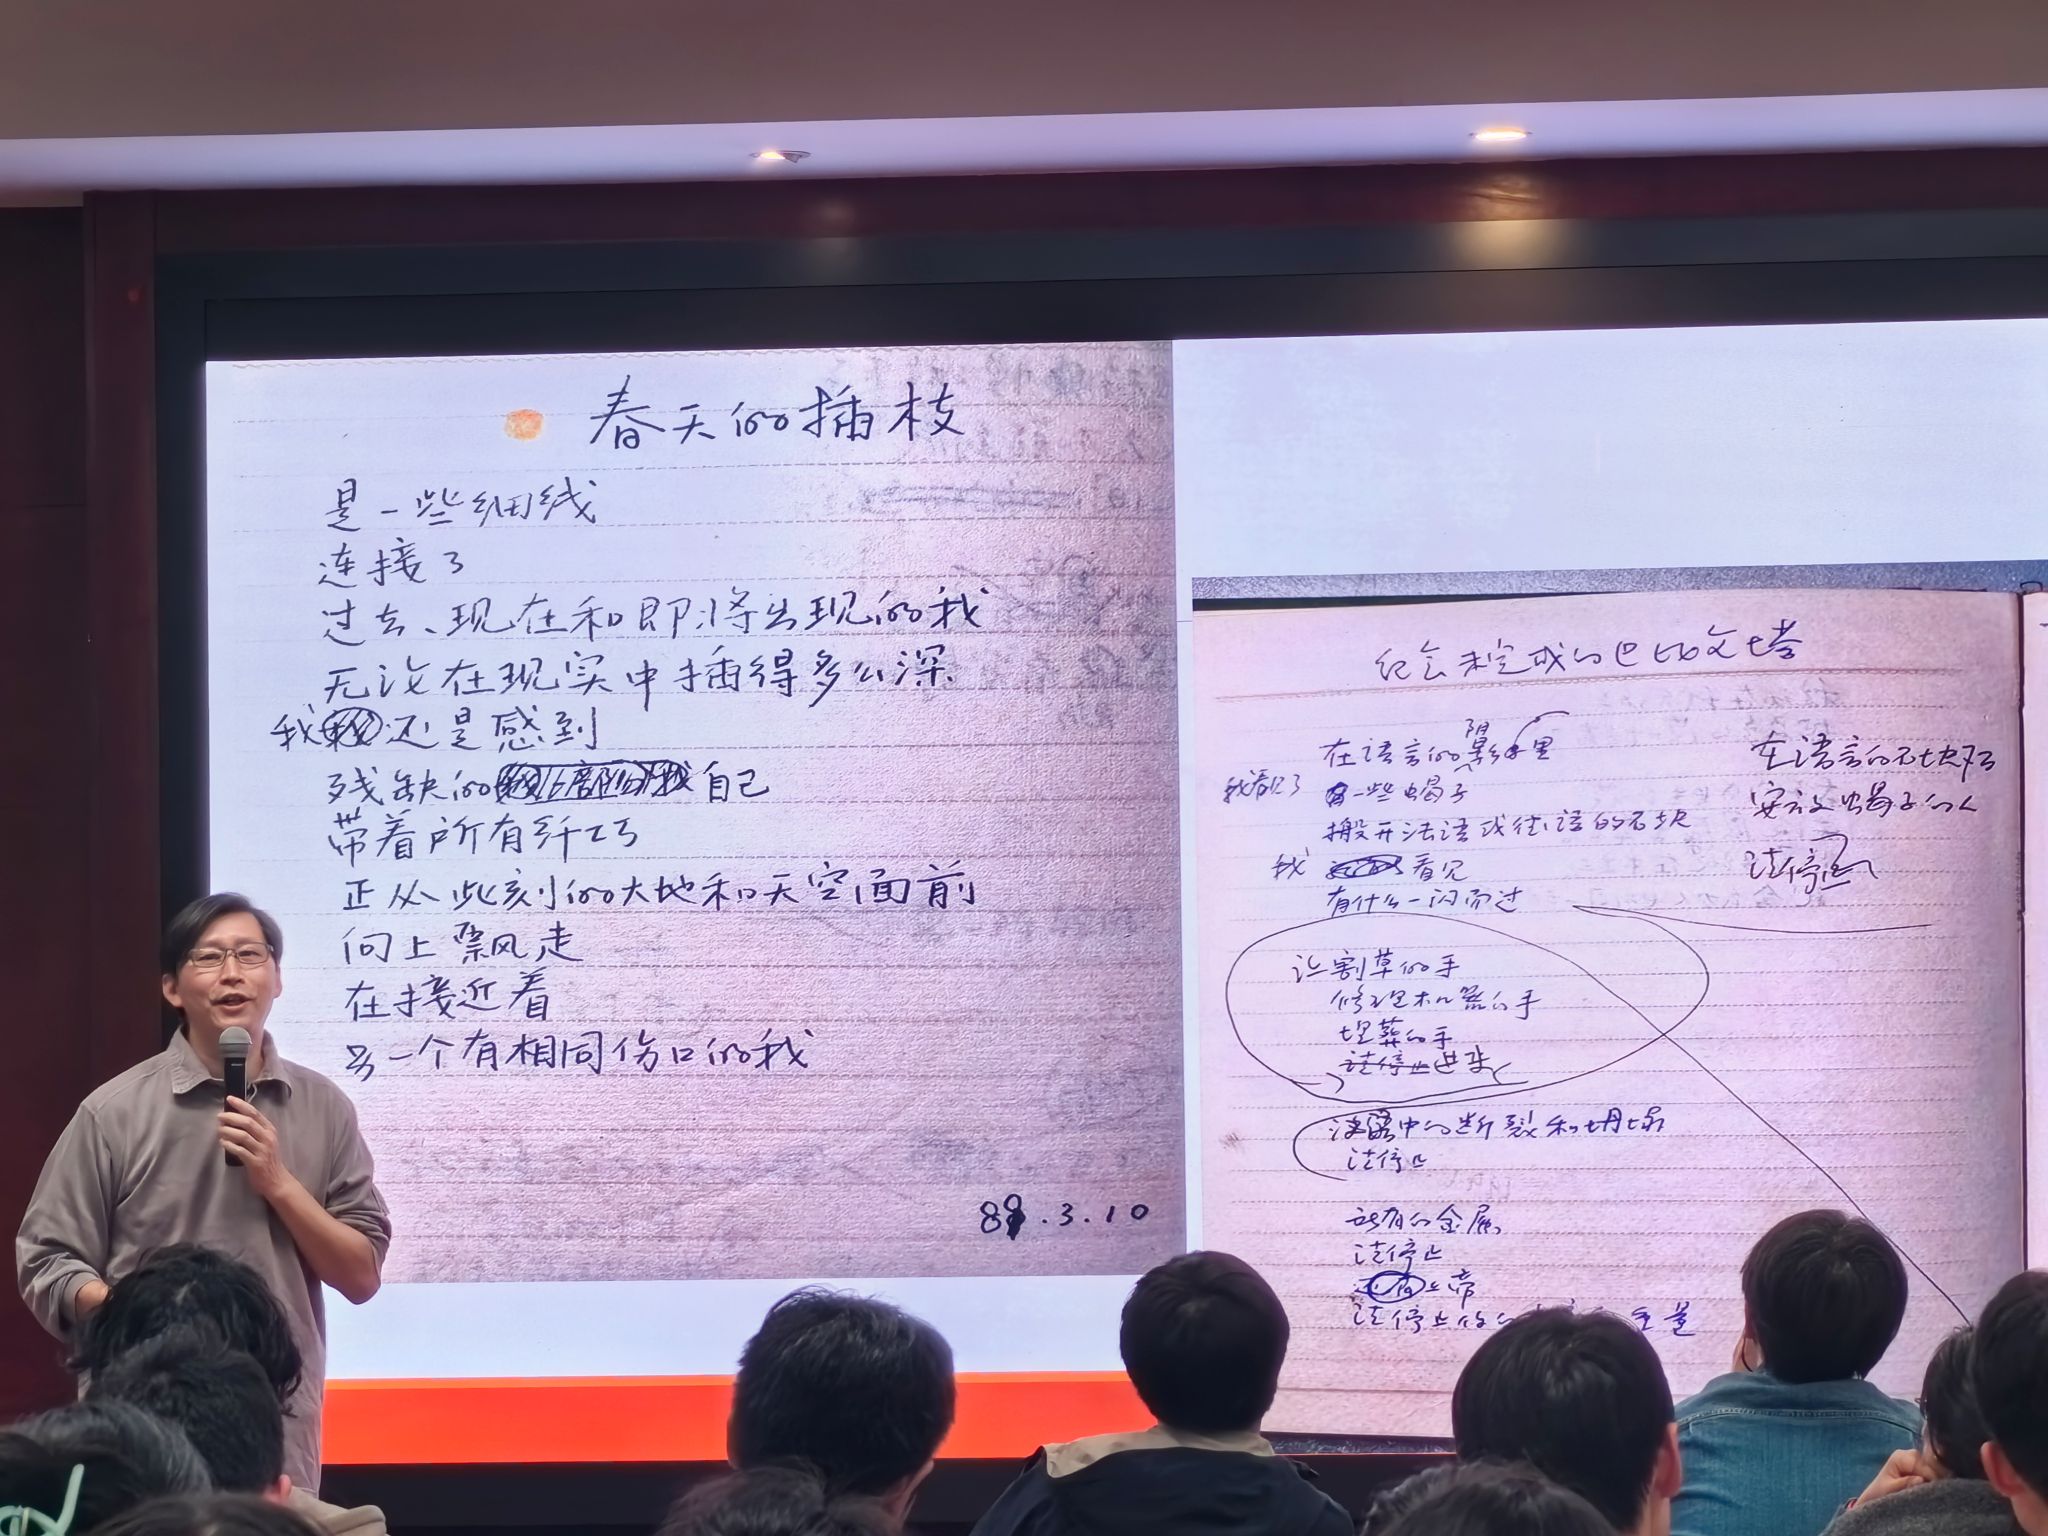 春天的插枝
是一些细线
连接了
过去、现在和即将出现的我
无论在现实中插得多么深
我还是感到
残缺的自己
带着所有纤巧
正从此刻的大地和天空面前
向上飘走
在接近着
另一个有相同伤口的我
89.3.10
纪念未完成的巴比伦塔
在语言的阴影里
我看见了 一些蝎子
搬开法语或德语的石块
我 看见
有什么一闪而过
让割草的手
修理机器的手
埋葬的手
请停止
中的断裂和坍塌
请停止
所有的金属
请停止
上帝
请停止你的 重量
在语言的石块下
安放蝎子的人
请停止